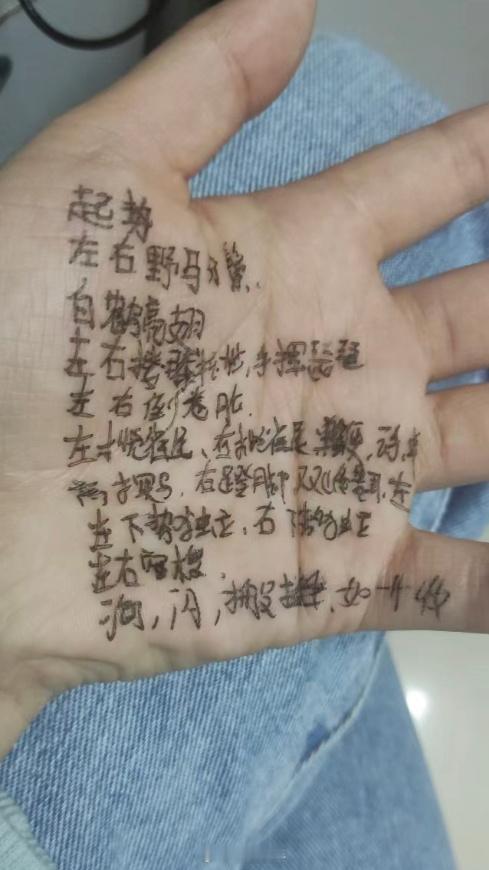 起势
左右野马分鬃
白鹤亮翅
左右搂膝拗步,手挥琵琶
左右倒卷肱
左揽雀尾、右揽雀尾 单鞭,云手
高探马 右蹬脚 双峰贯耳 左
左下势独立,右下势独立
左右穿梭
海,闪,搬拦捶、如 收